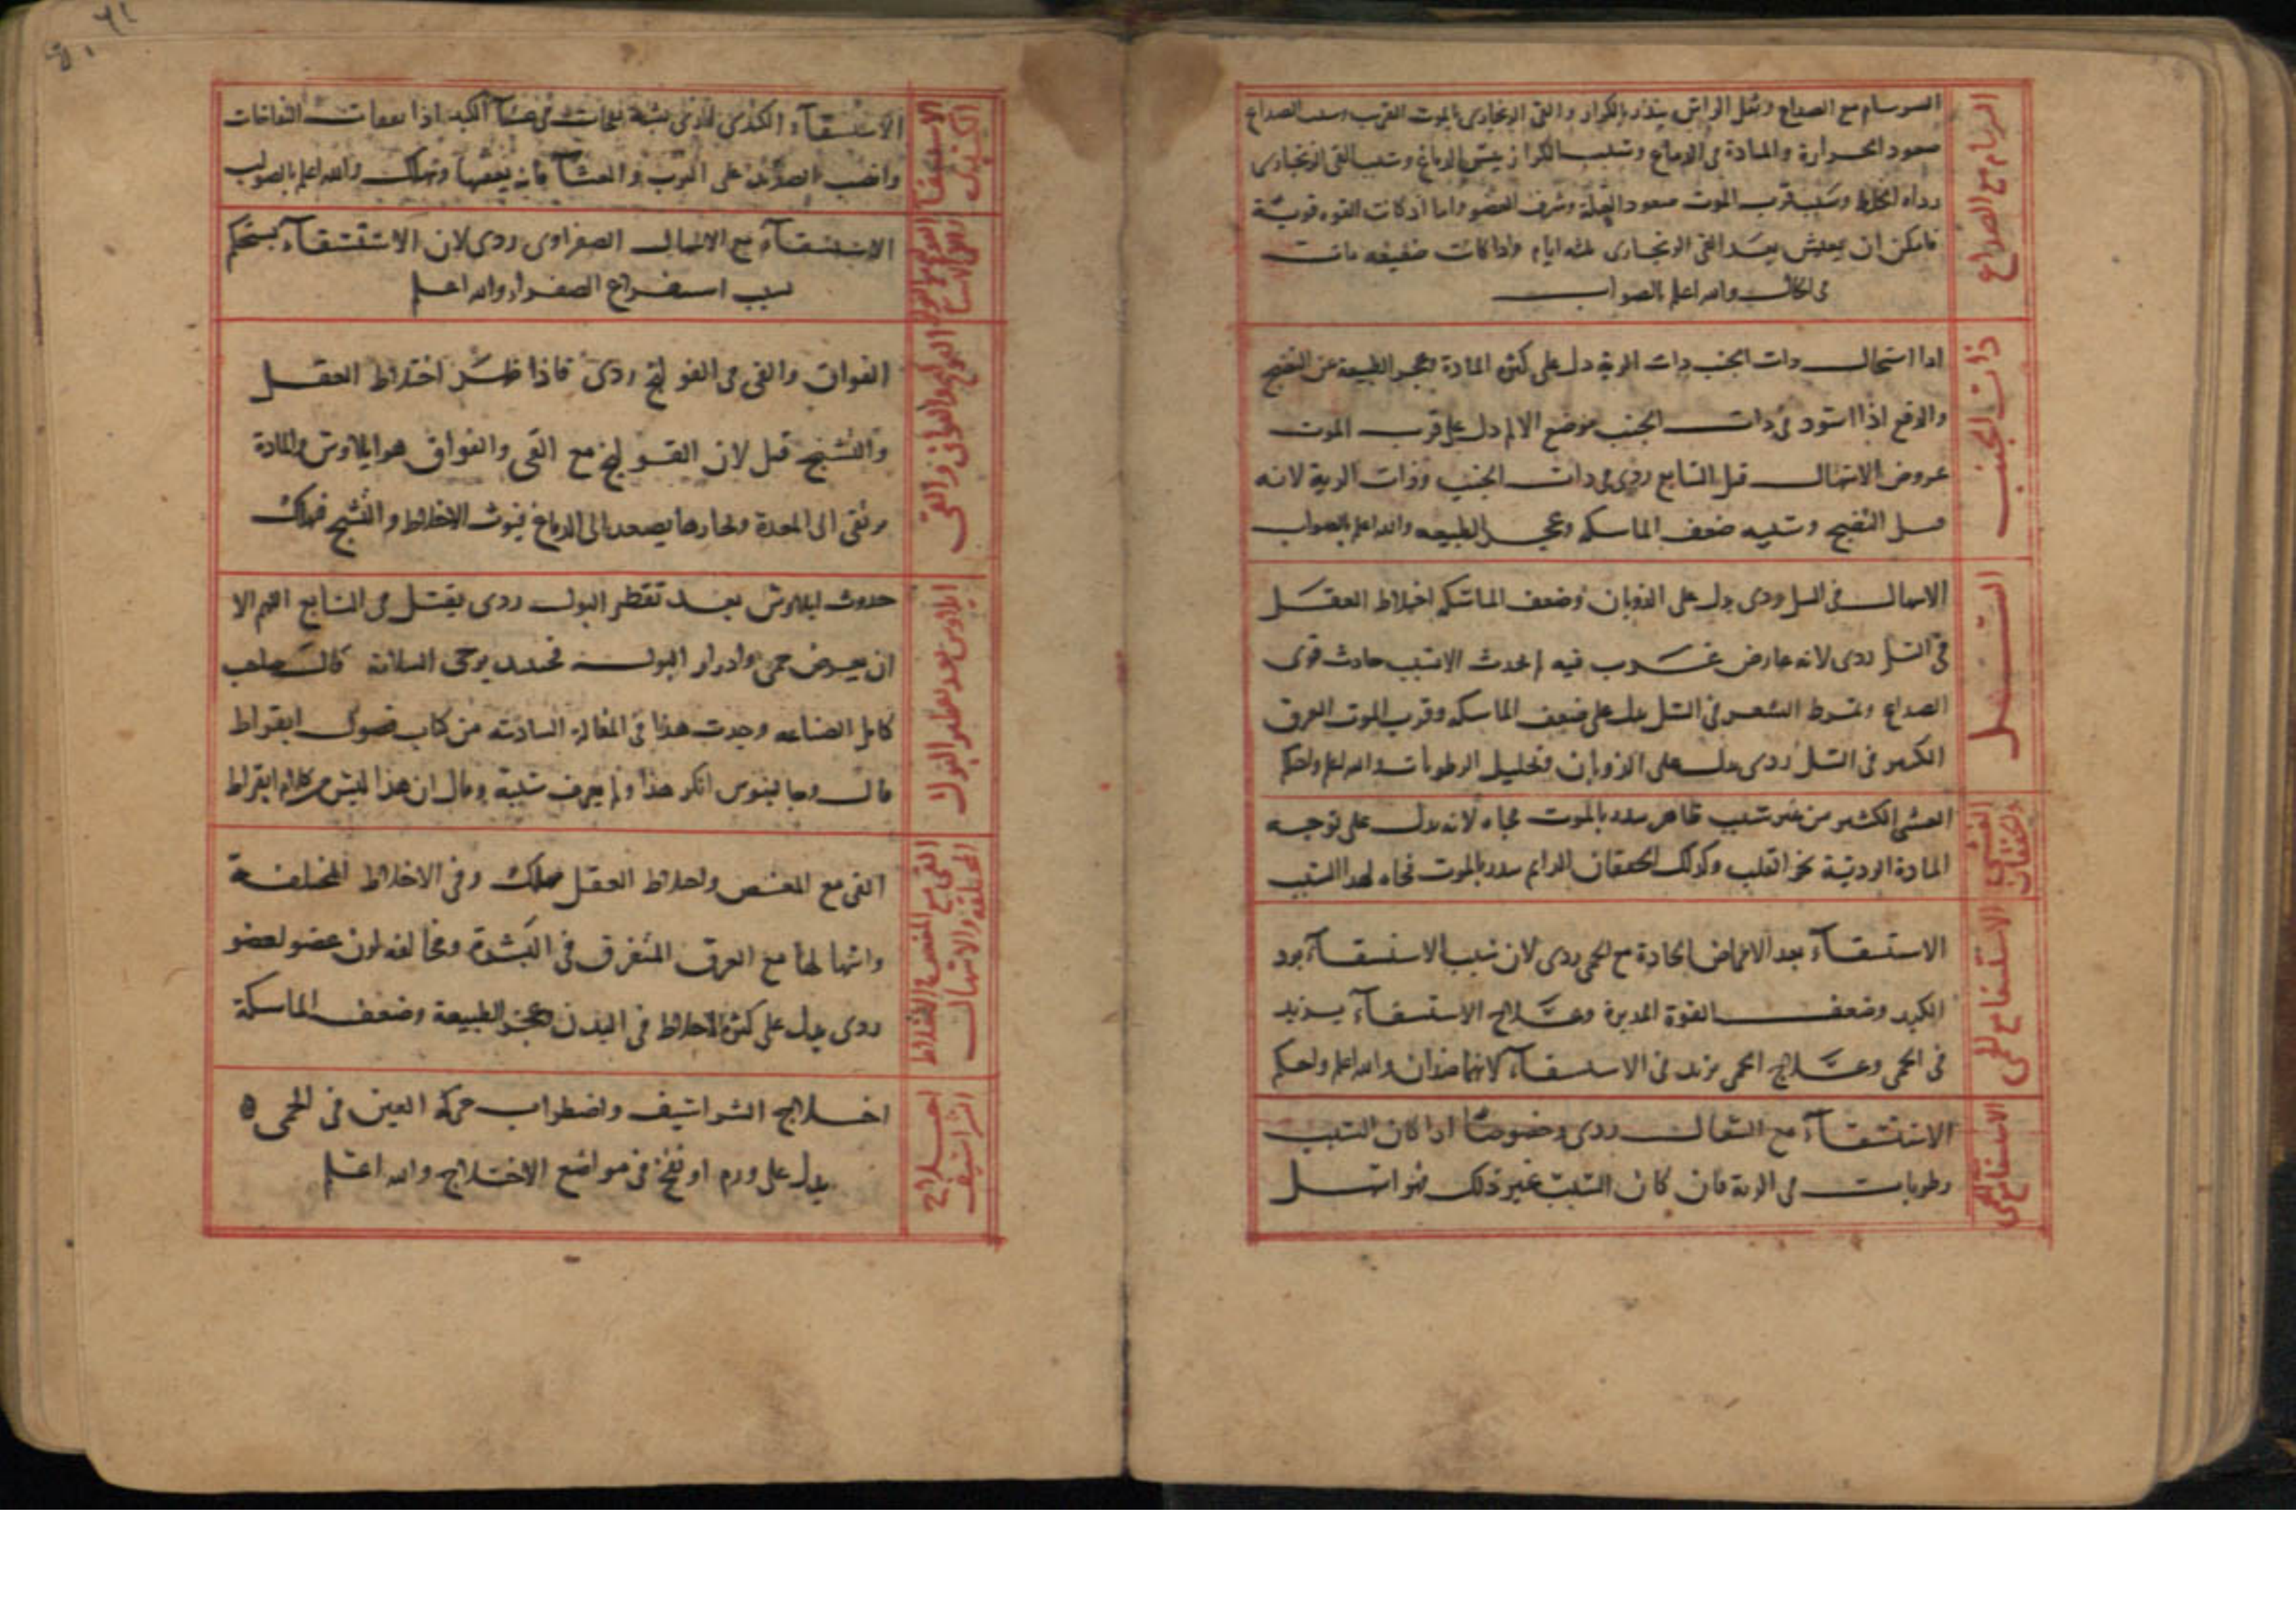 السرسام مع الصداع
السرسام مع الصداع وثقل الراس ينذر بالكزاز والقى الزنجارى بالموت القريب وسبب الصداع
صعود الحرارة والمادة فى الدماغ وسبب الكزاز يبس الدماغ وسبب القى الزنجارى
رداه الخلط وسبب قرب الموت صعود العلة وشرف العضو واما اذ كانت القوه قوية
فامكن ان يعيش بعد القى الزنجارى ثلثه ايام واذا كانت ضعيفه مات
فى الحال والله اعلم بالصواب
ذات الجنب
اذا استحال ذات الجنب ذات الرية دل على كثرة المادة وعجز الطبيعة عن النضج
والوقع اذا اسود فى ذات الجنب موضع الالم دل على قرب الموت
عروض الاسهال قبل السابع ردى فى ذات الجنب وذات الرية لانه
قبل النضج وسببه ضعف الماسكه وعجز الطبيعه والله اعلم بالصواب
السل
الاسهال فى السل ردى يدل على الذوبان وضعف الماسكه اختلاط العقل
فى السل ردى لانه عارض غريب فيه لم يحدث الا بسبب حادث قوى
الصداع وتمرط الشعر فى السل يدل على ضعف الماسكه وقرب الموت العرق
الكثير فى السل ردى يدل على الذوبان وتحليل الرطوبات والله اعلم واحكم
الغشى والخفقان
الغشى الكثير من غير سبب ظاهر ينذر بالموت فجاه لانه يدل على توجه
المادة الردية نحو القلب وكذلك الخفقان الدايم ينذر بالموت فجاه لهذا السبب
الاستسقا مع الحمى
الاستسقاء بعد الامراض الحادة مع الحمى ردى لان سبب الاستسقاء برد
الكبد وضعف القوة المدبرة وعلاج الاستسقاء يزيد
فى الحمى وعلاج الحمى يزيد فى الاستسقاء لانهما ضدان والله اعلم واحكم
الاستسقاء مع السعال ردى وخصوصا اذا كان السبب
رطوبات فى الرية فان كان السبب غير ذلك فهو اسهل
الاستسقا الكبدى
الاستسقاء الكبدى نفاخات فى غشاء الكبد اذا النفاخات
وانصب الصديد على الثرب والغشاء فانه يعفنها ويهلك والله اعلم بالصواب
الاستسقاء مع الاسهال الصفراوى ردى لان الاستسقاء يستحكم
بسبب استفراغ الصفراء والله اعلم
القولنج والفواق والقى
الفواق والقى فى القولنج ردى فاذا ظهر اختلاط العقل
والتشنج قتل لان القولنج مع القى والفواق هو ايلاوس والمادة
ترتقى الى المعدة وبخارها يصعد الى الدماغ فيورث الاختلاط والتشنج فيهلك
ايلاوس بعد تقطير البول
حدوث ايلاوس بعد تقطر البول ردى يقتل فى السابع اللهم الا
ان يعرض حمى وادرار البول فحينئذ يرجى السلامة قال صاحب
كامل الصناعه وجدت هذا فى المقالة السادسه من كتاب فصول ابقراط
قال وجالينوس انكر هذا ولم يعرف سببه وقال ان هذا ليس من كلام ابقراط
القى مع المغص والاختلاط المختلفة والاسهال
القى مع المغص واختلاط العقل مهلك وقى الاخلاط المختلفة
واسهالها مع العرق المتفرق فى البشرة ومخالفه لون عضو لعضو
ردى يدل على كثرة الاخلاط فى البدن وعجز الطبيعة وضعف الماسكة
اختلاج الشراسيف
اختلاج الشراسيف واضطراب حركة العين فى الحمى
يدل على ورم او نفخ فى مواضع الاختلاج والله اعلم